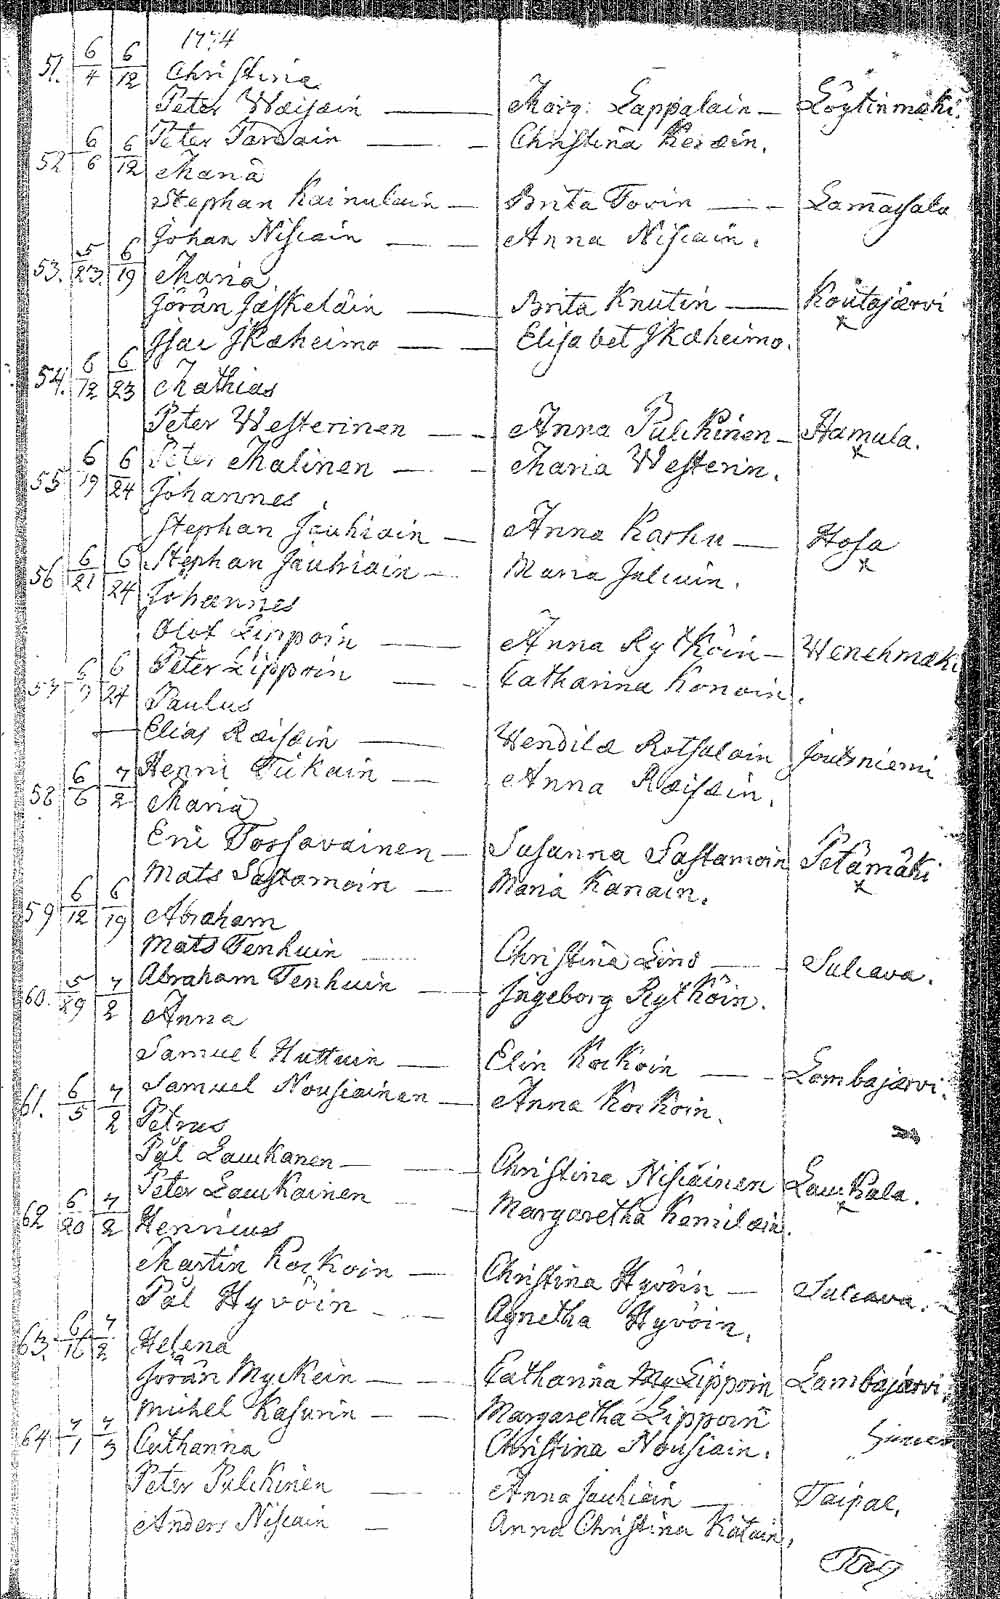 1774
51. 6/4 6/12 Christina
Peter Wæisæin — Marg: Lappalain — Löytinmäki.
Peter Tardain — Christina Keræin.
52 6/6 6/12 Maria
Stephan Kainulain — Brita Tovin — Lamasalo
Johan Nisiain — Anna Nisiain.
53. 5/23. 6/19 Maria
Jöran Jäskeläin — Brita Knutin — Koutajærvi
Isac Ikæheimo — Elisabet Ikæheimo.
54. 6/12 6/23 Mathias
Peter Westerinen — Anna Pulckinen — Hamula.
Peter Malinen — Maria Westerin.
55 6/19 6/24 Johannes
Stephan Jauhiain — Anna Karhu — Hosa
Stephan Jauhiain — Maria
56 6/21 6/24 Johannes
Olof Lippoin — Anna Rytköin — Wenehmäki
Peter Lippoin — Catharina Konoin.
57 6/24 Paulus
Elias Ræisæin — Wendila Rotsalain Joutsniemi
Henric Tickain — Anna Ræisæin.
58 6/6 7/2 Maria
Eric Tossavainen — Susanna Sastamoin Petämäki
Mats Sastamoin — Maria Kanain.
59 6/12 6/19 Abraham
Mats Tenhuin Christina Lind — Sulcava.
Abraham Tenhuin — Ingeborg Rytköin.
60. 5/29 7/2 Anna
Samuel Huttuin — Elin Kockoin — Lombajærvi.
Samuel Nousiainen — Anna Kockoin.
61. 6/5 7/2 Petrus
Pål Lauckanen — Christina Nisiäinen Lauckala.
Peter Lauckainen — Margaretha Kemilæin.
62 6/20 7/2 Henricus
Martin Kockoin — Christina Hyvöin — Sulcava.
Pål Hyvöin — Agnetha Hyvöin.
63. 6/16 7/2 Helena
Jörän Myckein — Catharina Lippoin Lambajärvi
Michel Kasurin — Margaretha Lippoin
64 7/1 7/3 Catharina Christina Nousiain.
Peter Pulckinen — Anna Jauhiain — Taipal.
Anders Nisiain — Anna Christina Kätäin.